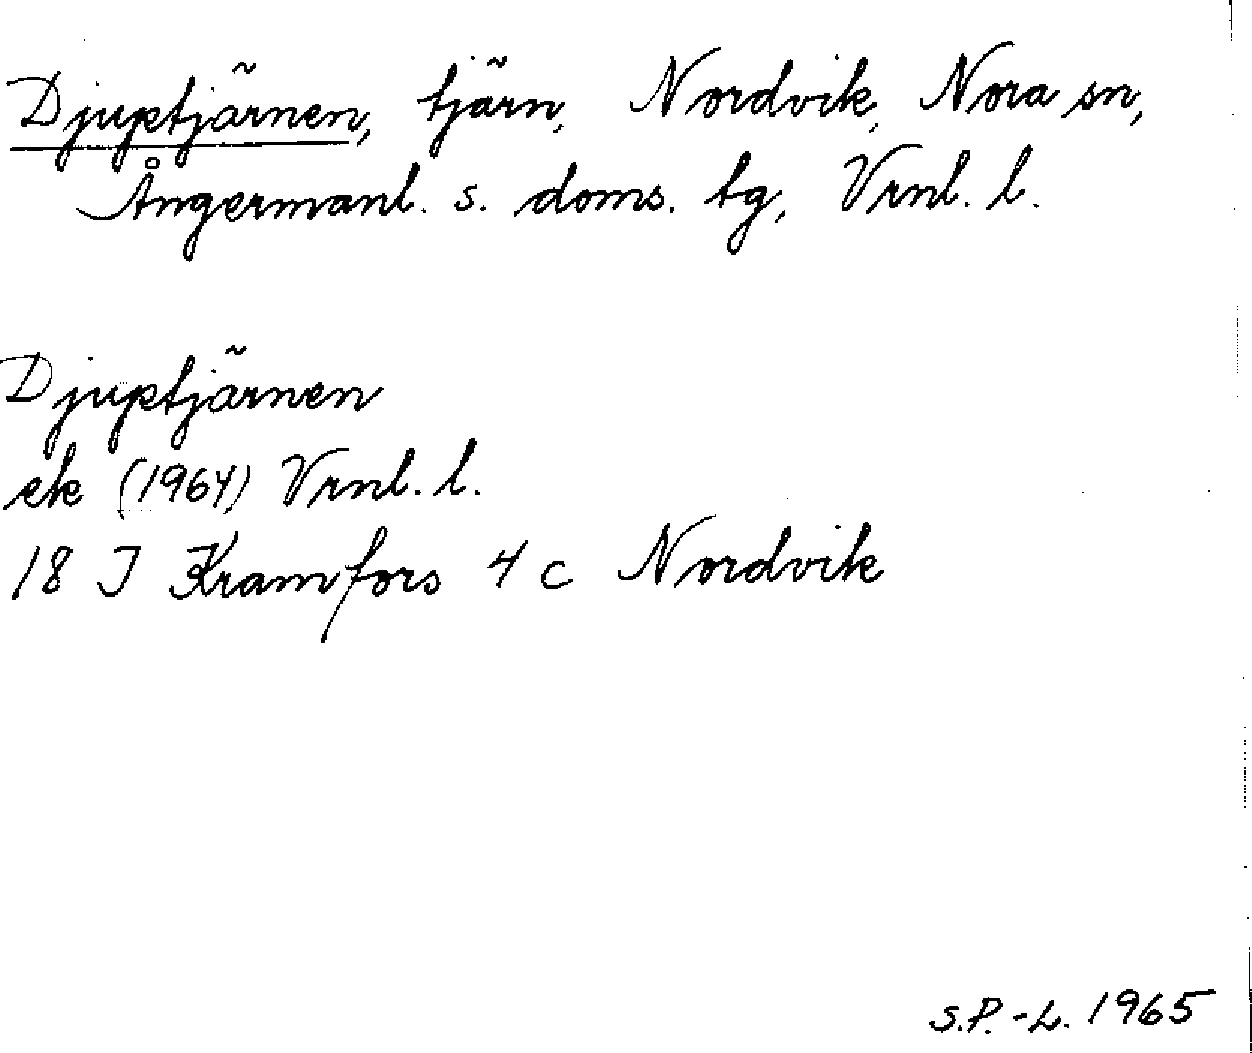 Djuptjärnen, tjärn, Nordvik, Nora sn,
Ångermanl. s. doms. tg, Vrnl. l.
Djuptjärnen
ek (1964) Vrnl. l.
18 J Kramfors 4 c Nordvik
S.P.-L. 1965